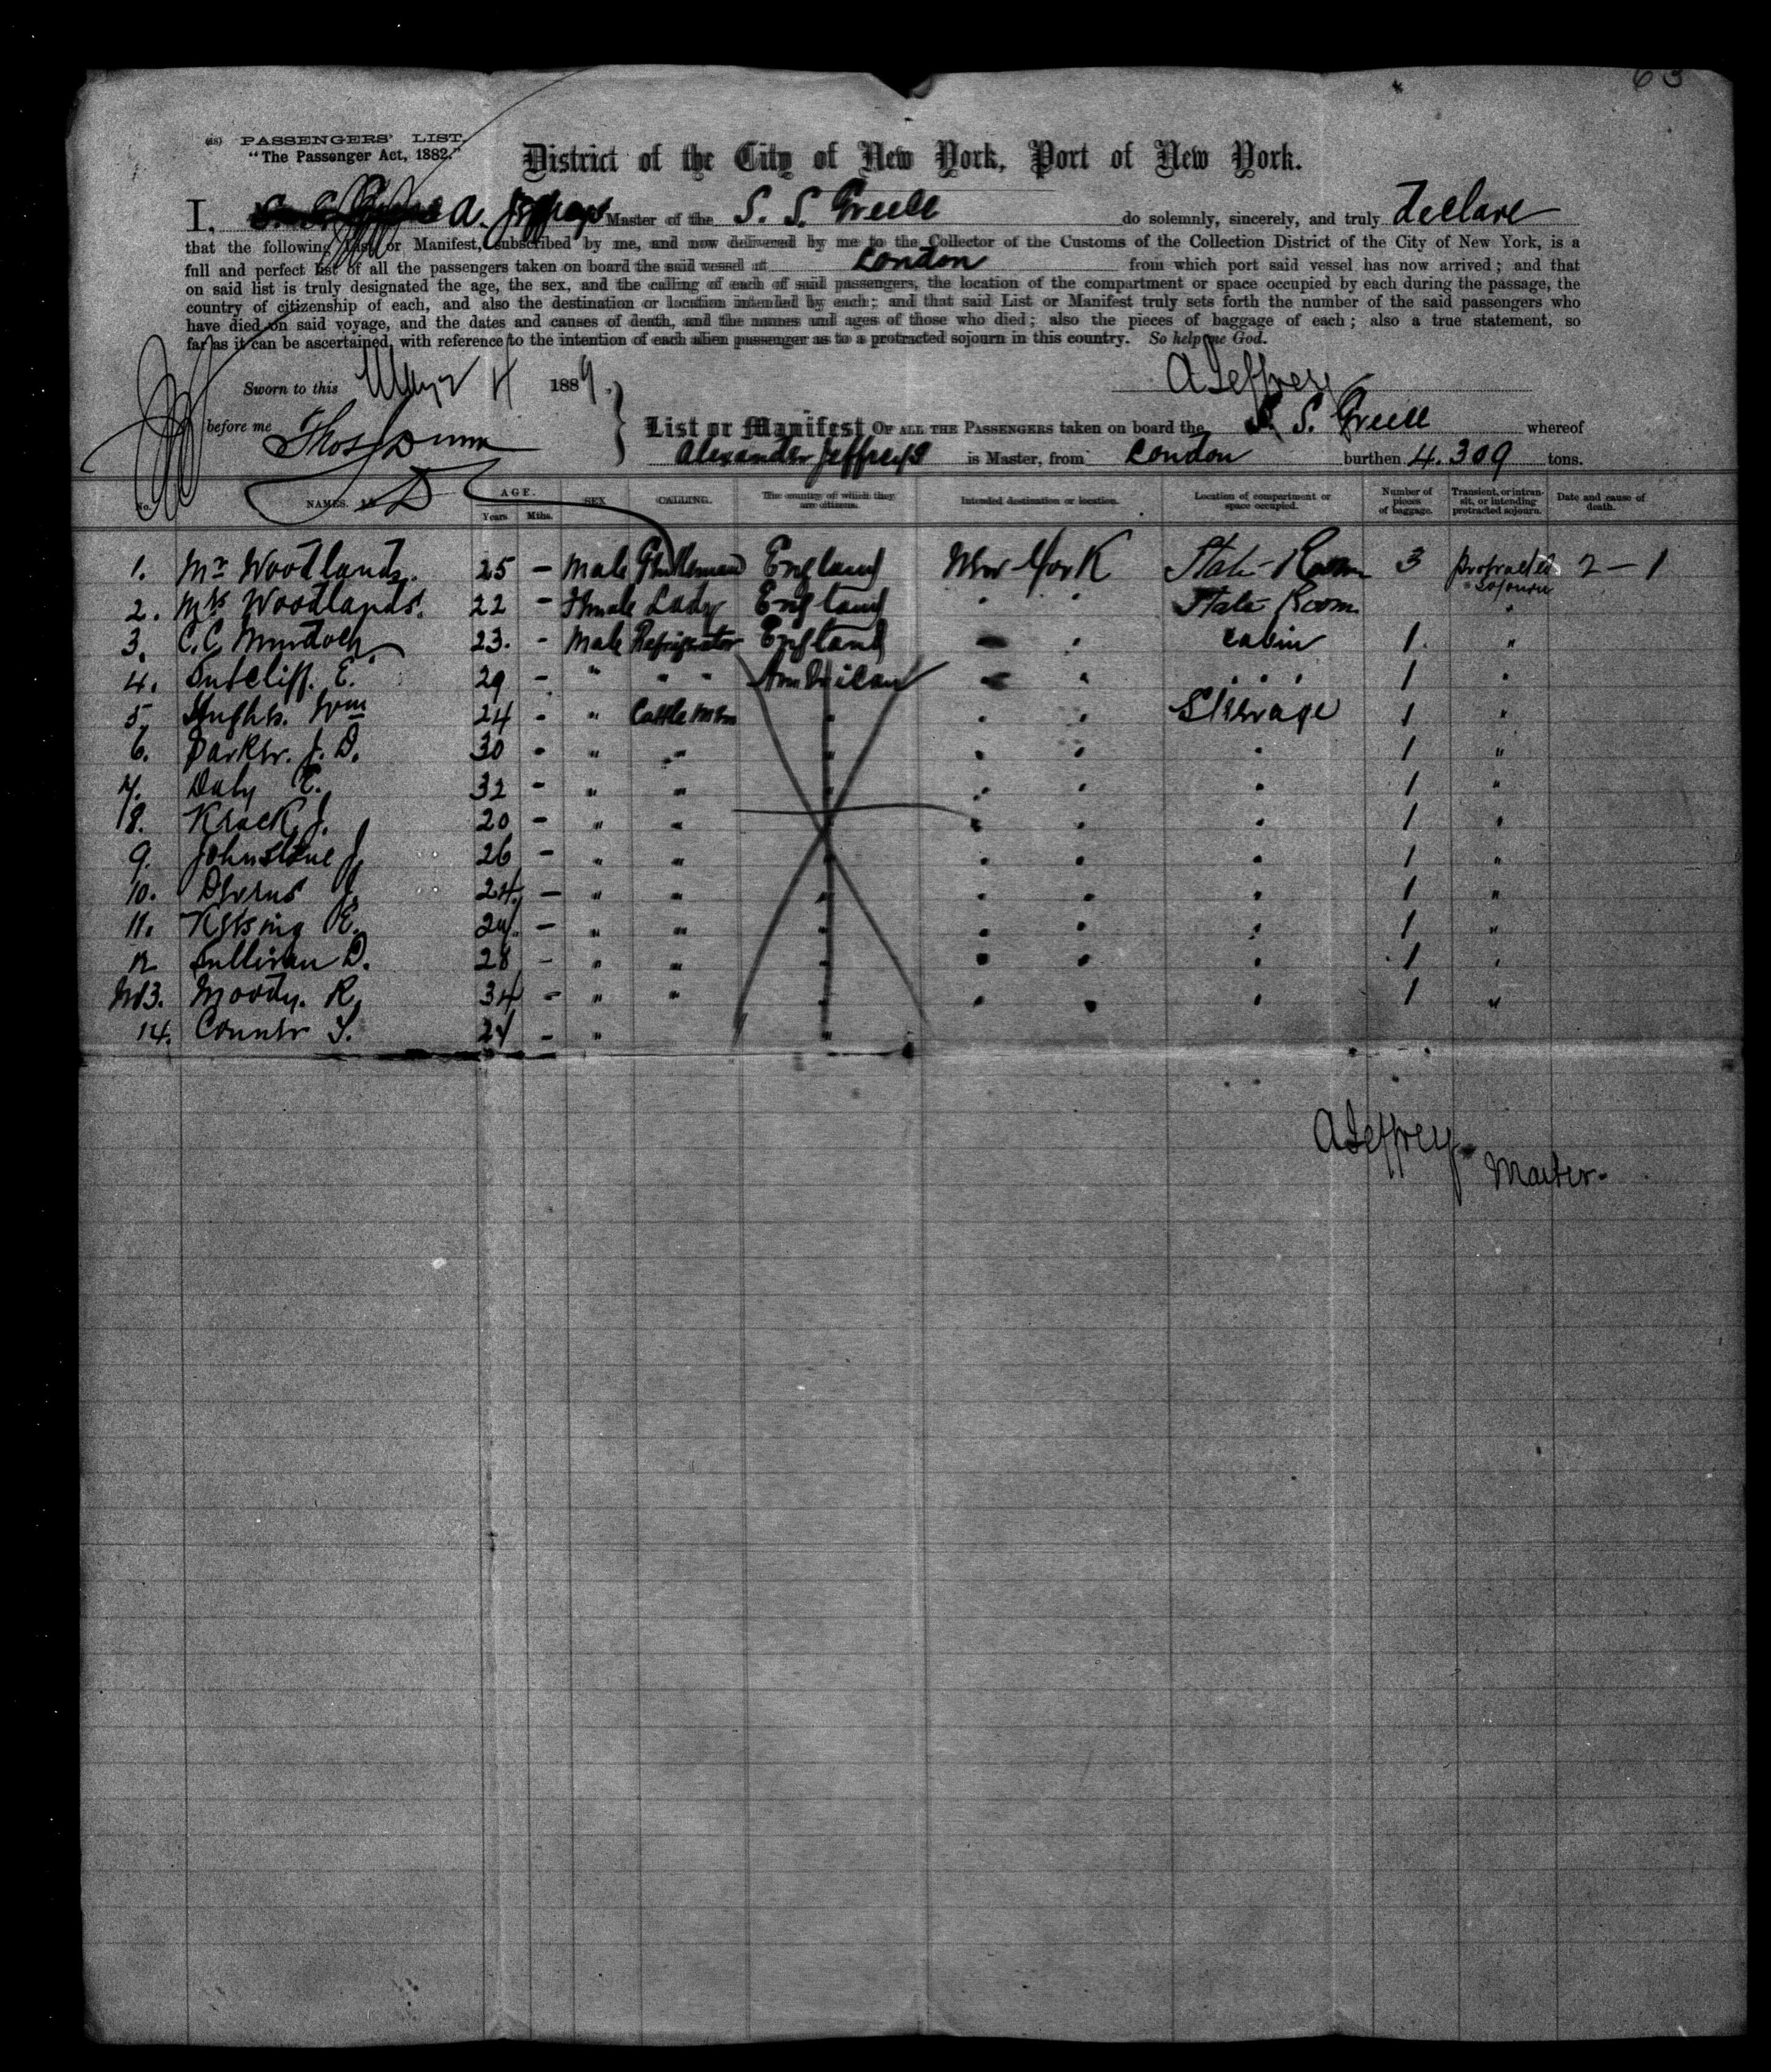 63
(18) PASSENGERS' LIST.
"The Passenger Act, 1882."
District of the City of New York, Port of New York.
I, A. Jeffreys Master of the S. S. Greece do solemnly, sincerely, and truly declare
that the following List or Manifest, subscribed by me, and now delivered by me to the Collector of the Customs of the Collection District of the City of New York, is a
full and perfect list of all the passengers taken on board the said vessel at London from which port said vessel has now arrived; and that
on said list is truly designated the age, the sex, and the calling of each of said passengers, the location of the compartment or space occupied by each during the passage, the
country of citizenship of each, and also the destination or location intended by each; and that said List or Manifest truly sets forth the number of the said passengers who
have died on said voyage, and the dates and causes of death, and the names and ages of those who died; also the pieces of baggage of each; also a true statement, so
far as it can be ascertained, with reference to the intention of each alien passenger as to a protracted sojourn in this country. So help me God.
Sworn to this May 4 1889. A Jeffreys
before me Thos Dunn
List or Manifest OF ALL THE PASSENGERS taken on board the S. S. Greece whereof
Alexander Jeffreys is Master, from London burthen 4.309 tons.
No. NAMES. AGE. Years. Mths. SEX CALLING. The country of which they are citizens. Intended destination or location. Location of compartment or space occupied. Number of pieces of baggage. Transient, or in transit, or intending protracted sojourn. Date and cause of death.
1. Mr Woodlands. 25 - Male Gentleman England New York State-Room 3 protracted sojourn 2-1
2. Mrs Woodlands. 22 - Female Lady England " " State Room "
3. C.C. Murdoch 23. - Male Refrigerator England " " cabin 1. "
4. Sutcliff. E. 29 - " " " American " " " " " 1 "
5. Hughes. Wm 24 - " Cattle men " " " Steerage 1 "
6. Parker. J. D. 30 - " " " " " " 1 "
7. Daly E. 32 - " " " " " " 1 "
8. Krack J. 20 - " " " " " " 1 "
9. Johnstone J. 26 - " " " " " " 1 "
10. J. 24 - " " " " " " 1 "
11. Kissing E. 24. - " " " " " " 1 "
12 Sullivan D. 28 - " " " " " " 1 "
13. Moody. R. 34 - " " " " " " 1 "
14. Conner 24 - " "
A Jeffreys
Master.